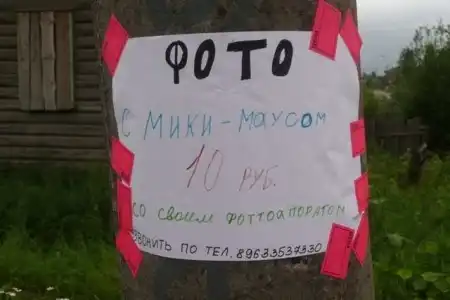 ФОТО
С МИКИ-МАУСОМ
10 РУБ.
СО СВОИМ ФОТТОАПОРАТОМ
ЗВОНИТЬ ПО ТЕЛ. 89633537330